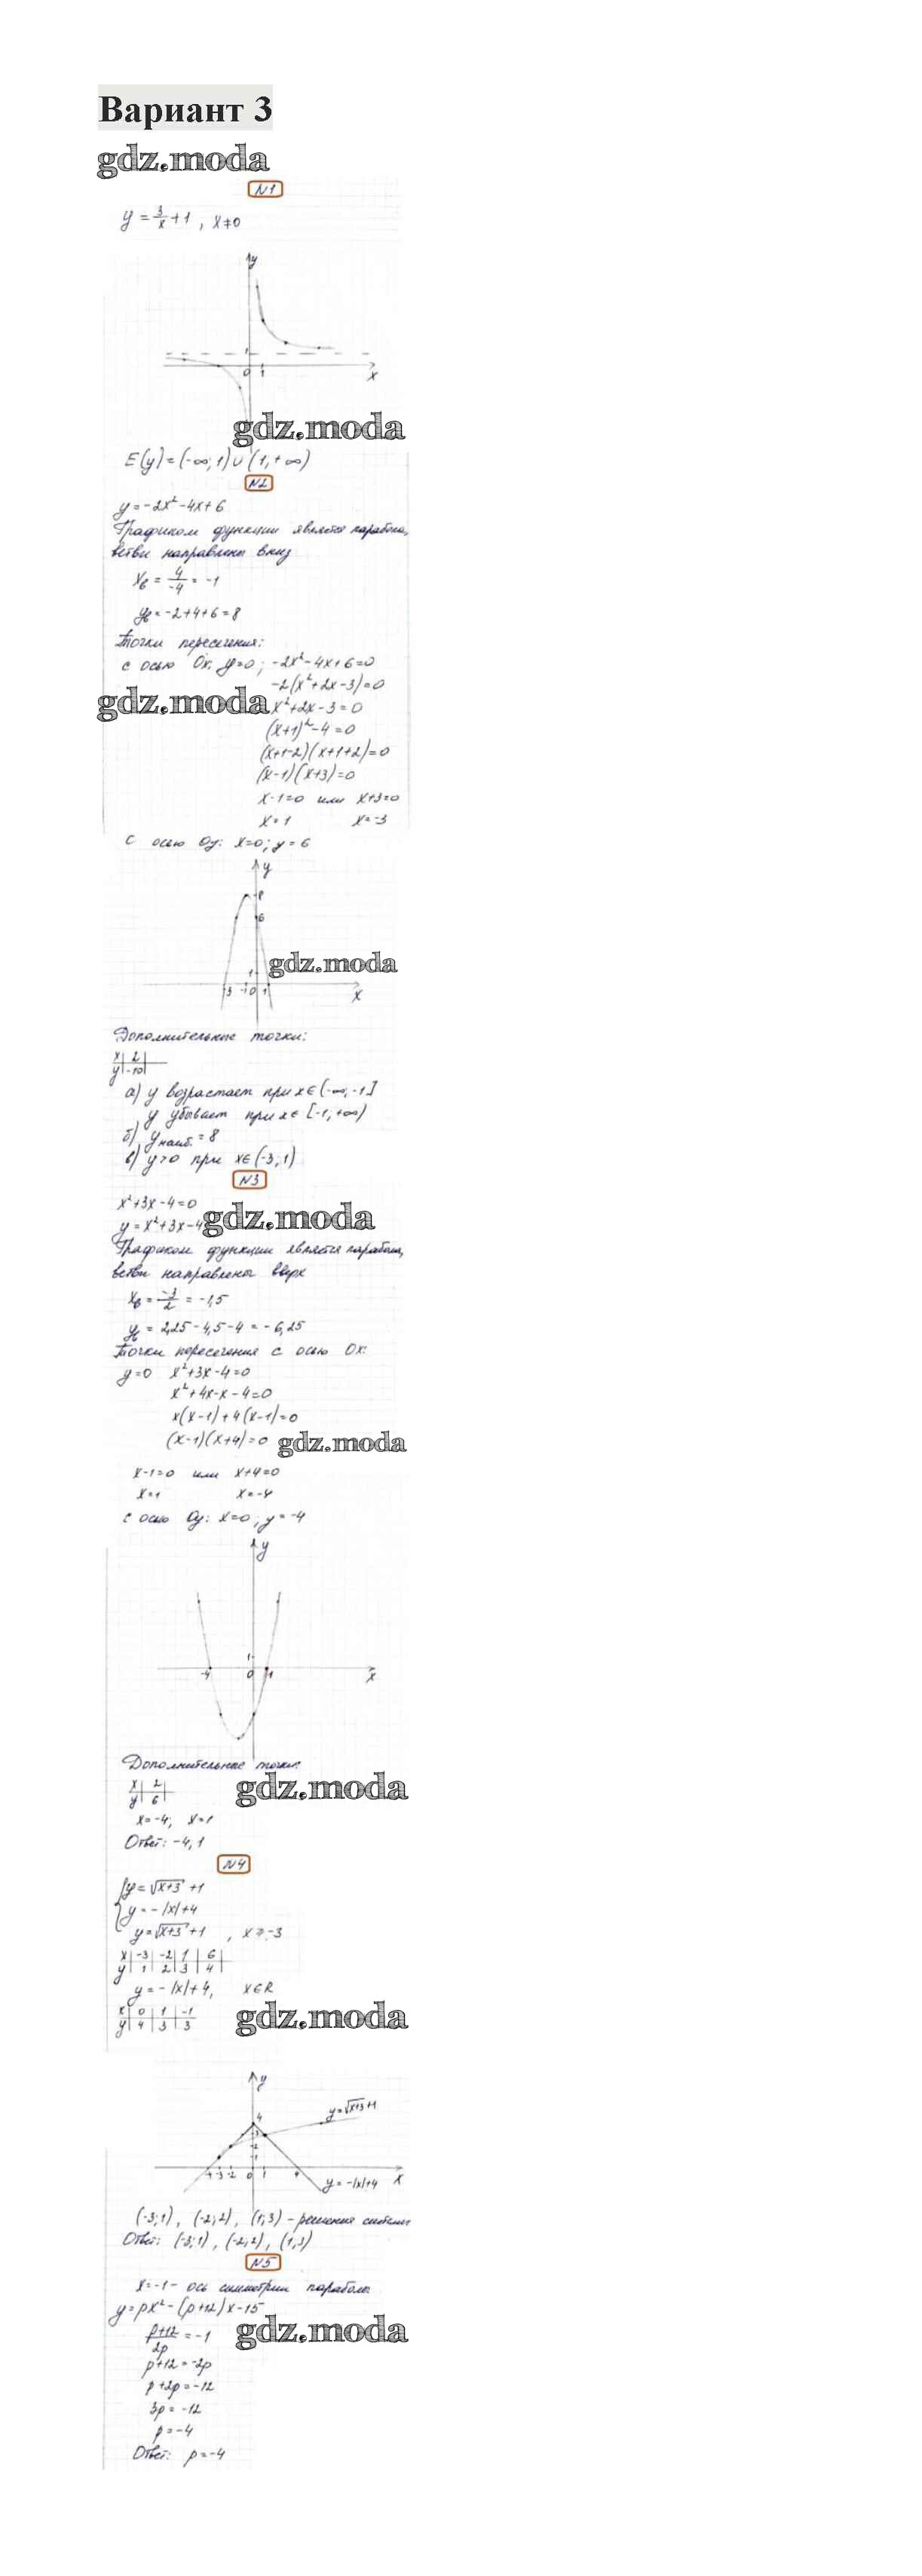 Вариант 3
gdz.moda
N1
y = 3/x + 1 , x≠0
y
1
0 1
x
gdz.moda
E(y) = (-∞; 1) ∪ (1, +∞)
N2
y = -2x² - 4x + 6
Графиком функции является парабола,
ветви направлены вниз
x_в = 4/-4 = -1
y_в = -2+4+6 = 8
Точки пересечения:
с осью Ox: y=0; -2x²-4x+6=0
-2(x²+2x-3)=0
gdz.moda x²+2x-3=0
(x+1)²-4=0
(x+1-2)(x+1+2)=0
(x-1)(x+3)=0
x-1=0 или x+3=0
x=1 x=-3
С осью Oy: x=0; y=6
y
8
6
gdz.moda
1
-3 -1 0 1
x
Дополнительные точки:
x 2
y -10
а) y возрастает при x∈(-∞; -1]
y убывает при x∈[-1; +∞)
б) y наиб. = 8
в) y>0 при x∈(-3; 1)
N3
x²+3x-4=0
y = x²+3x-4 gdz.moda
Графиком функции является парабола,
ветви направлены вверх
x_в = -3/2 = -1,5
y_в = 2,25-4,5-4 = -6,25
Точки пересечения с осью Ox:
y=0 x²+3x-4=0
x²+4x-x-4=0
x(x-1)+4(x-1)=0
(x-1)(x+4)=0 gdz.moda
x-1=0 или x+4=0
x=1 x=-4
с осью Oy: x=0; y=-4
y
1
-4 0 1
x
Дополнительные точки:
x 2
y 6
gdz.moda
x=-4; x=1
Ответ: -4; 1
N4
y=√(x+3)+1
y=-|x|+4
y=√(x+3)+1 , x≥-3
x -3 -2 1 6
y 1 2 3 4
y=-|x|+4, x∈R
x 0 1 -1
y 4 3 3
gdz.moda
y
y=√(x+3)+1
4
3
2
1
-4 -3 -2 0 1 4
x
y=-|x|+4
(-3;1), (-2;2), (1;3) - решения системы
Ответ: (-3;1), (-2;2), (1;3)
N5
x=-1 - ось симметрии параболы
y=px²-(p+12)x-15
(p+12)/2p = -1
gdz.moda
p+12=-2p
p+2p=-12
3p=-12
p=-4
Ответ: p=-4